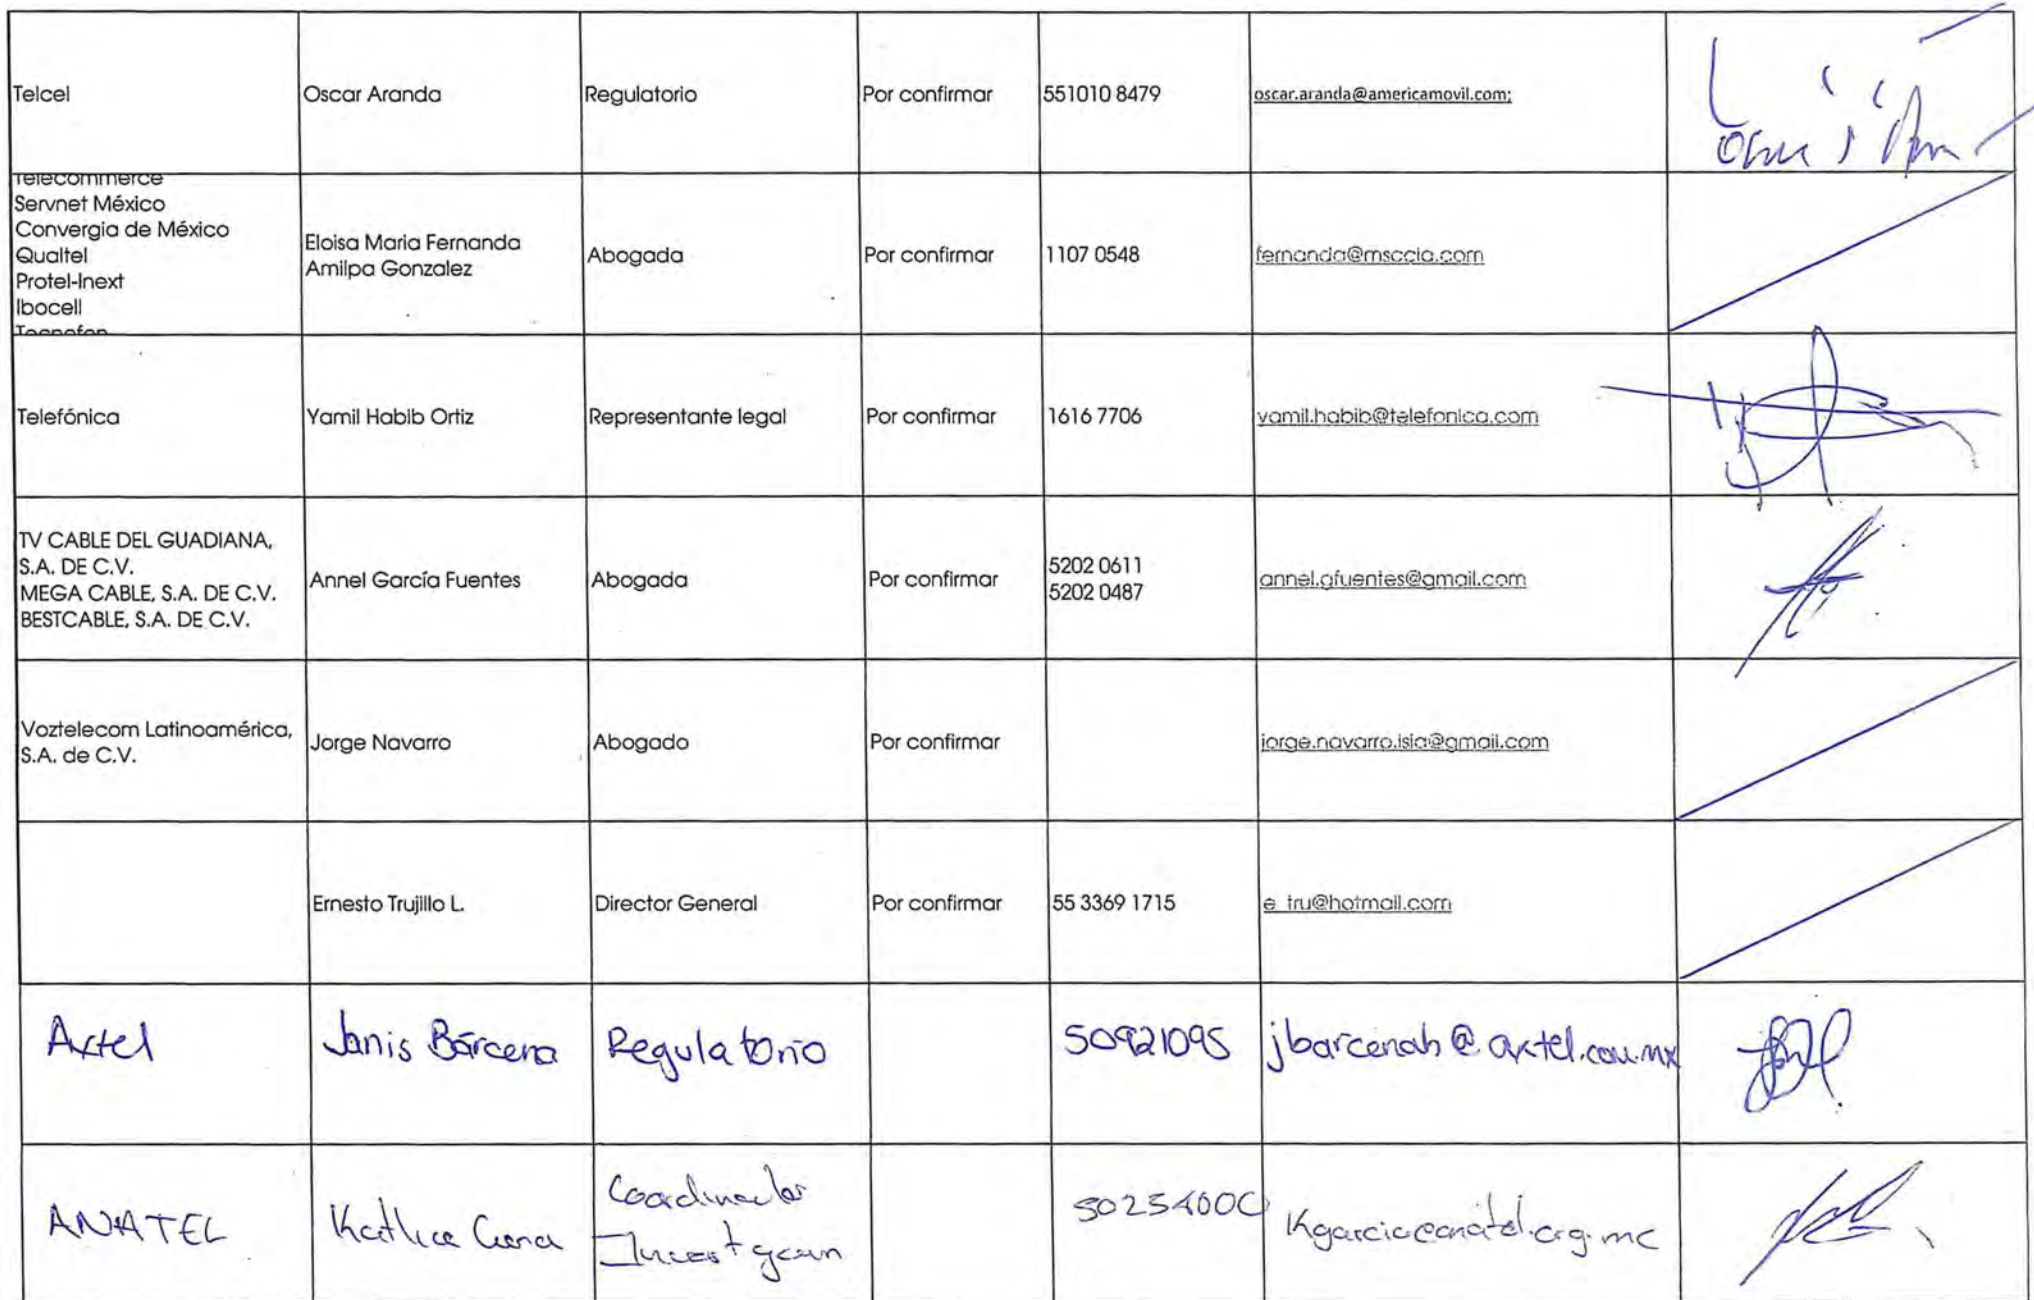 Telcel
Oscar Aranda
Regulatorio
Por confirmar
551010 8479
oscar.aranda@americamovil.com;
Telecommerce
Servnet México
Convergia de México
Qualtel
Protel-Inext
Ibocell
Tecnofon
Eloisa Maria Fernanda
Amilpa Gonzalez
Abogada
Por confirmar
1107 0548
fernanda@msccia.com
Telefónica
Yamil Habib Ortiz
Representante legal
Por confirmar
1616 7706
yamil.habib@telefonica.com
TV CABLE DEL GUADIANA,
S.A. DE C.V.
MEGA CABLE, S.A. DE C.V.
BESTCABLE, S.A. DE C.V.
Annel García Fuentes
Abogada
Por confirmar
5202 0611
5202 0487
annel.gfuentes@gmail.com
Voztelecom Latinoamérica,
S.A. de C.V.
Jorge Navarro
Abogado
Por confirmar
jorge.navarro.isla@gmail.com
Ernesto Trujillo L.
Director General
Por confirmar
55 3369 1715
e_tru@hotmail.com
Axtel
Janis Bárcena
Regulatorio
50921095
jbarcenah@axtel.com.mx
ANATEL
Coordinador